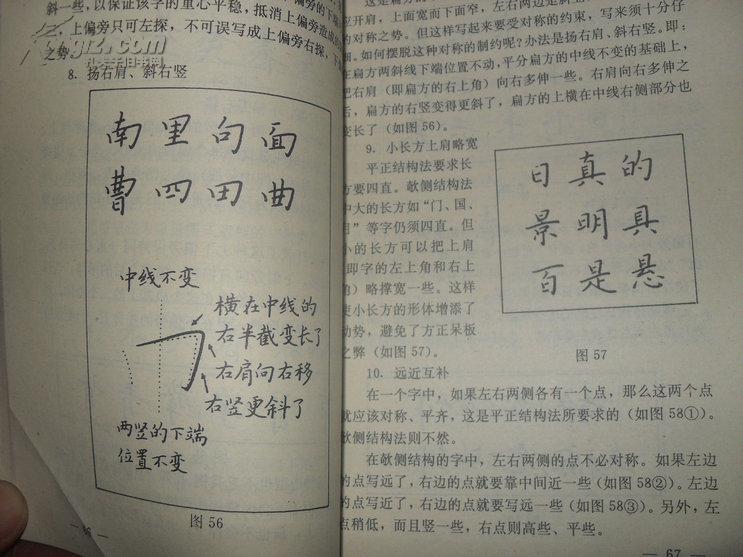 斜一些,以保证该字的重心平稳,抵消上偏旁造成的
,上偏旁只可左探,不可误写成上偏旁右探,下
之势。
8. 扬右肩、斜右竖
南里句面
曹四田曲
中线不变
横在中线的
右半截变长了
右肩向右移
右竖更斜了
两竖的下端
位置不变
图56
应开肩,上面宽而下面窄,左右两边是斜
的对称之势。但这样写起来要受对称的约束,写来须十分仔
细。如何摆脱这种对称的制约呢?办法是扬右肩、斜右竖。即:
在扁方两斜线下端位置不动,平分扁方的中线不变的基础上,
把右肩(即扁方的右上角)向右多伸一些。右肩向右多伸之
后,扁方的右竖变得更斜了,扁方的上横在中线右侧部分也
变长了(如图56)。
9. 小长方上肩略宽
平正结构法要求长
方要四直。欹侧结构法
中大的长方如“门、国、
目”等字仍须四直。但
小的长方可以把上肩
(即字的左上角和右上
角)略撑宽一些。这样
使小长方的形体增添了
动势,避免了方正呆板
之弊(如图57)。
日真的
景明具
百是悬
图57
10. 远近互补
在一个字中,如果左右两侧各有一个点,那么这两个点
就应该对称、平齐,这是平正结构法所要求的(如图58①)。
欹侧结构法则不然。
在欹侧结构的字中,左右两侧的点不必对称。如果左边
的点写远了,右边的点就要靠中间近一些(如图58②)。左边
的点写近了,右边的点就要写远一些(如图58③)。另外,左
点稍低,而且竖一些,右点则高些、平些。
— 67 —